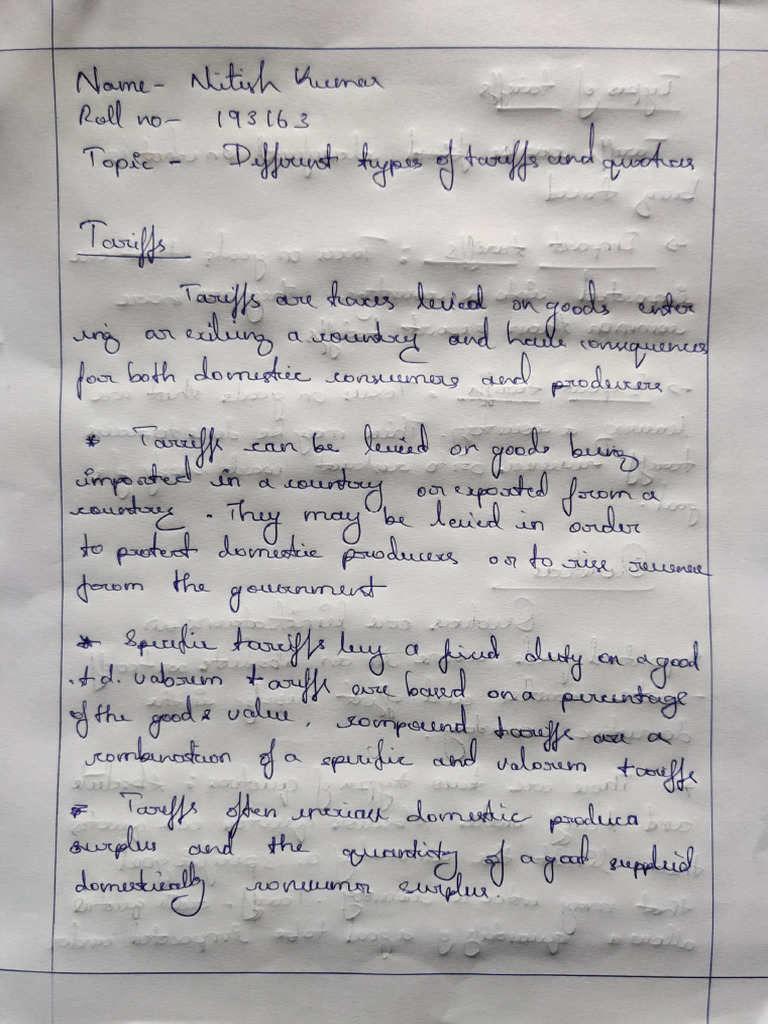 Name - Nitish Kumar
Roll no - 193163
Topic - Different types of tariffs and quotas
Tariffs
Tariffs are taxes levied on goods enter
ing or exiting a country and have consequences
for both domestic consumers and producers
* Tariffs can be levied on goods being
imported in a country or exported from a
country. They may be levied in order
to protect domestic producers or to rise revenue
from the government
* Specific tariffs levy a fixed duty on a good
Ad. valorem tariffs are based on a percentage
of the goods value, compound tariffs are a
combination of a specific and valorem tariffs
* Tariffs often increase domestic produca
surplus and the quantity of a good supplied
domestically consumer surplus.